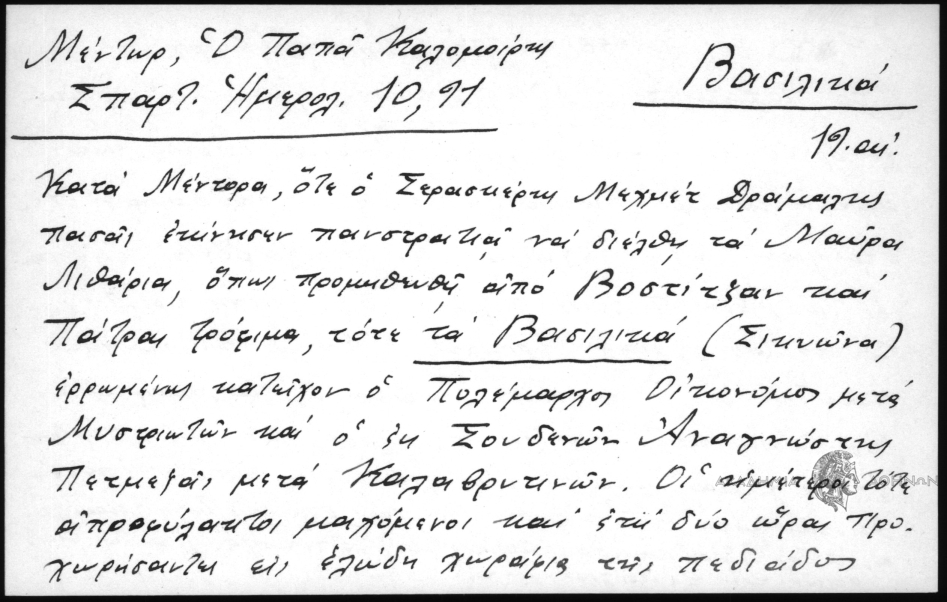 Μέντωρ, Ὁ Παπᾶ Καλομοίρης
Σπαρτ. Ἡμερολ. 10, 91
Βασιλικά
19. αἰ.
Κατά Μέντορα, ὅτε ὁ Σερασκέρης Μεχμέτ Δράμαλης
πασᾶς ἐκίνησεν πανστρατιᾷ νά διέλθῃ τά Μαῦρα
Λιθάρια, ὅπως προμηθευθῇ ἀπό Βοστίτζαν καί
Πάτρας τρόφιμα, τότε τά Βασιλικά (Σικυῶνα)
ἐρρωμένως κατεῖχον ὁ Πολέμαρχος Οἰκονόμος μετά
Μυστριωτῶν καί ὁ ἐκ Σουδενῶν Ἀναγνώστης
Πετμεζᾶς μετά Καλαβρυτινῶν. Οἱ ἡμέτεροι τότε
ἀπροφύλακτοι μαχόμενοι καί ἐπί δύο ὥρας προ-
χωρήσαντες εἰς ἑλώδη χωράφια τῆς πεδιάδος
ΑΚΑΔΗΜΙΑ ΑΘΗΝΩΝ